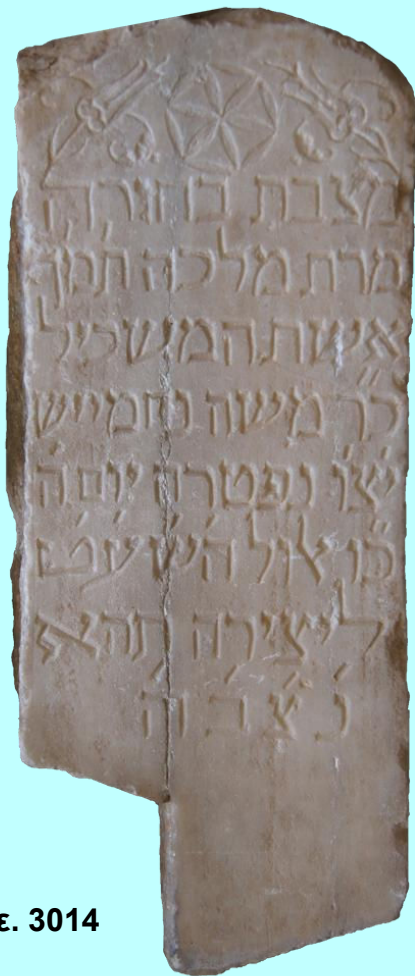 מצבת בחורה
מרת מלכה תמך
אשת המשכיל
כ״ר משה נחמייש
יצ״ו נפטרה יום ה
כ״ו אלול ה׳ש׳ע׳ט׳
ליצירה תהא
נ׳צ׳ב׳ה׳
ε. 3014